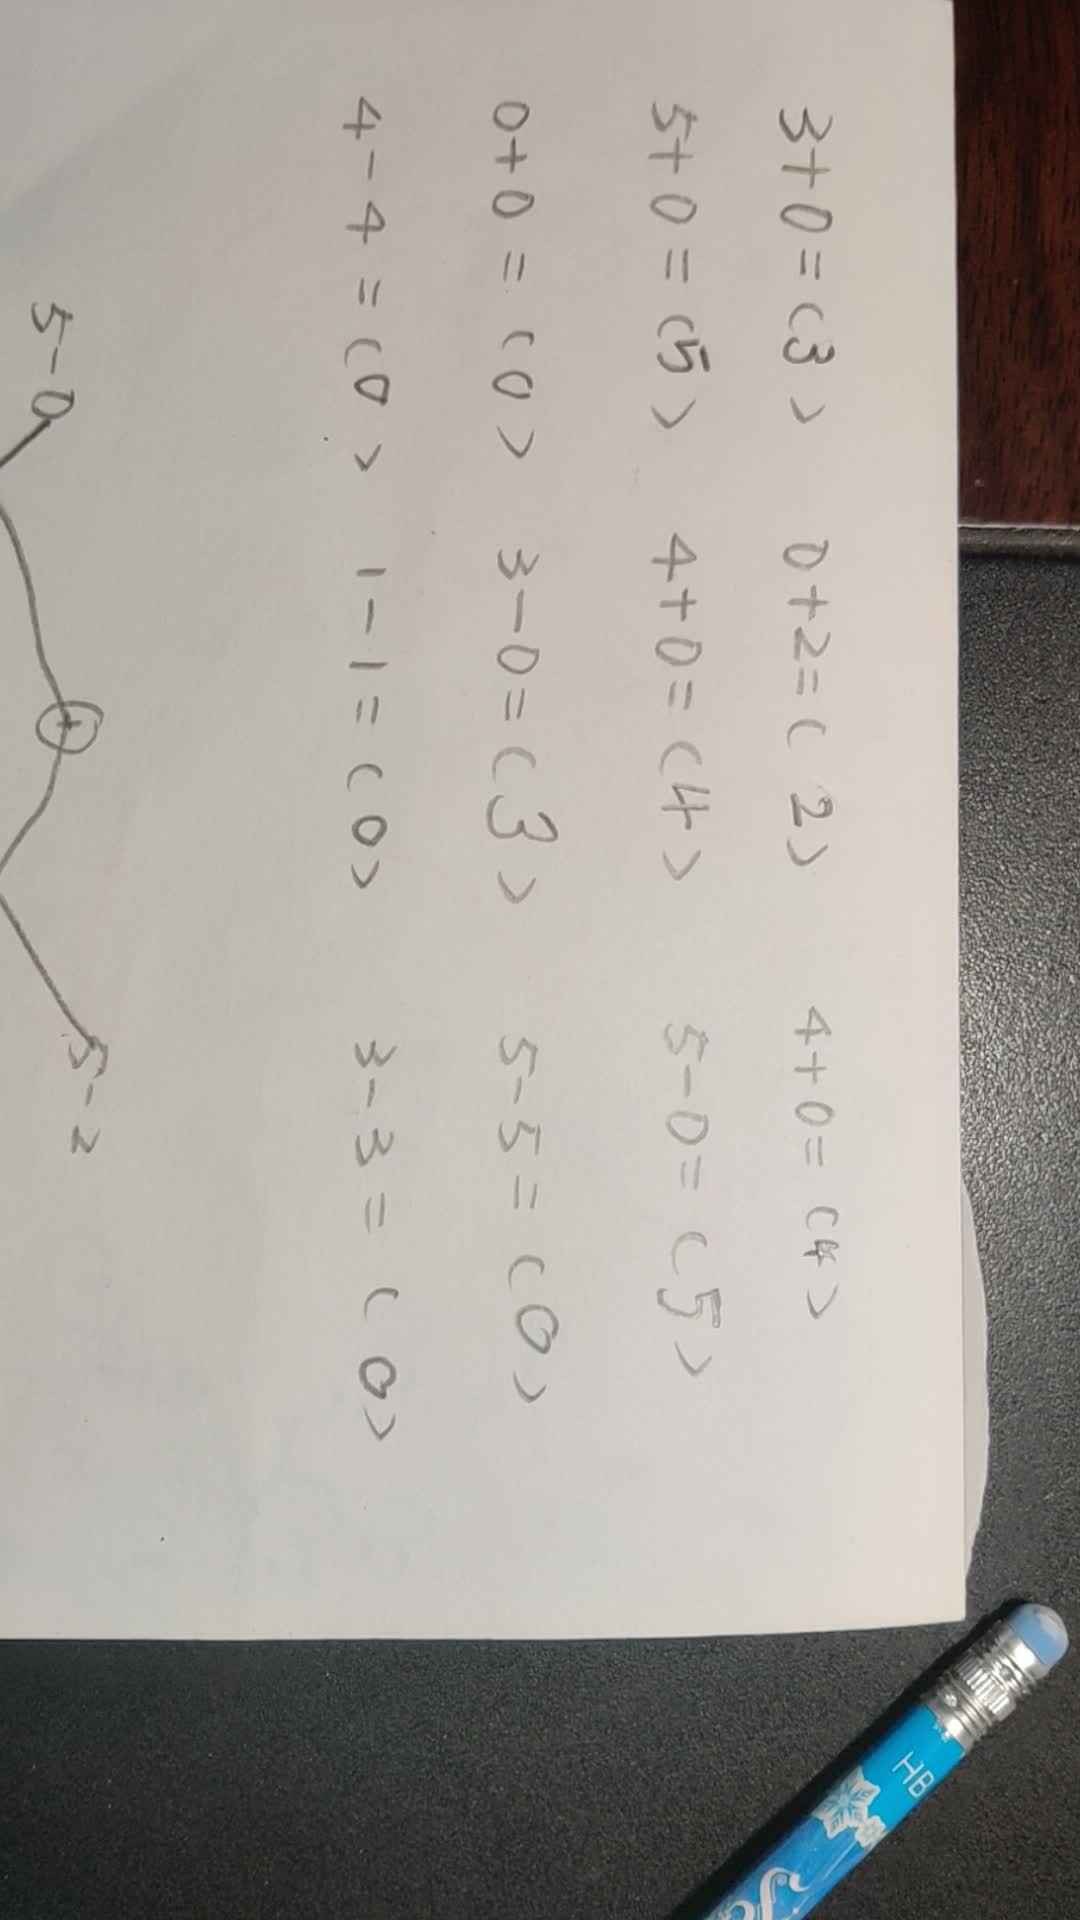 3+0=(3) 0+2=(2) 4+0=(4)
5+0=(5) 4+0=(4) 5-0=(5)
0+0=(0) 3-0=(3) 5-5=(0)
4-4=(0) 1-1=(0) 3-3=(0)
5-0 + 5-2
HB